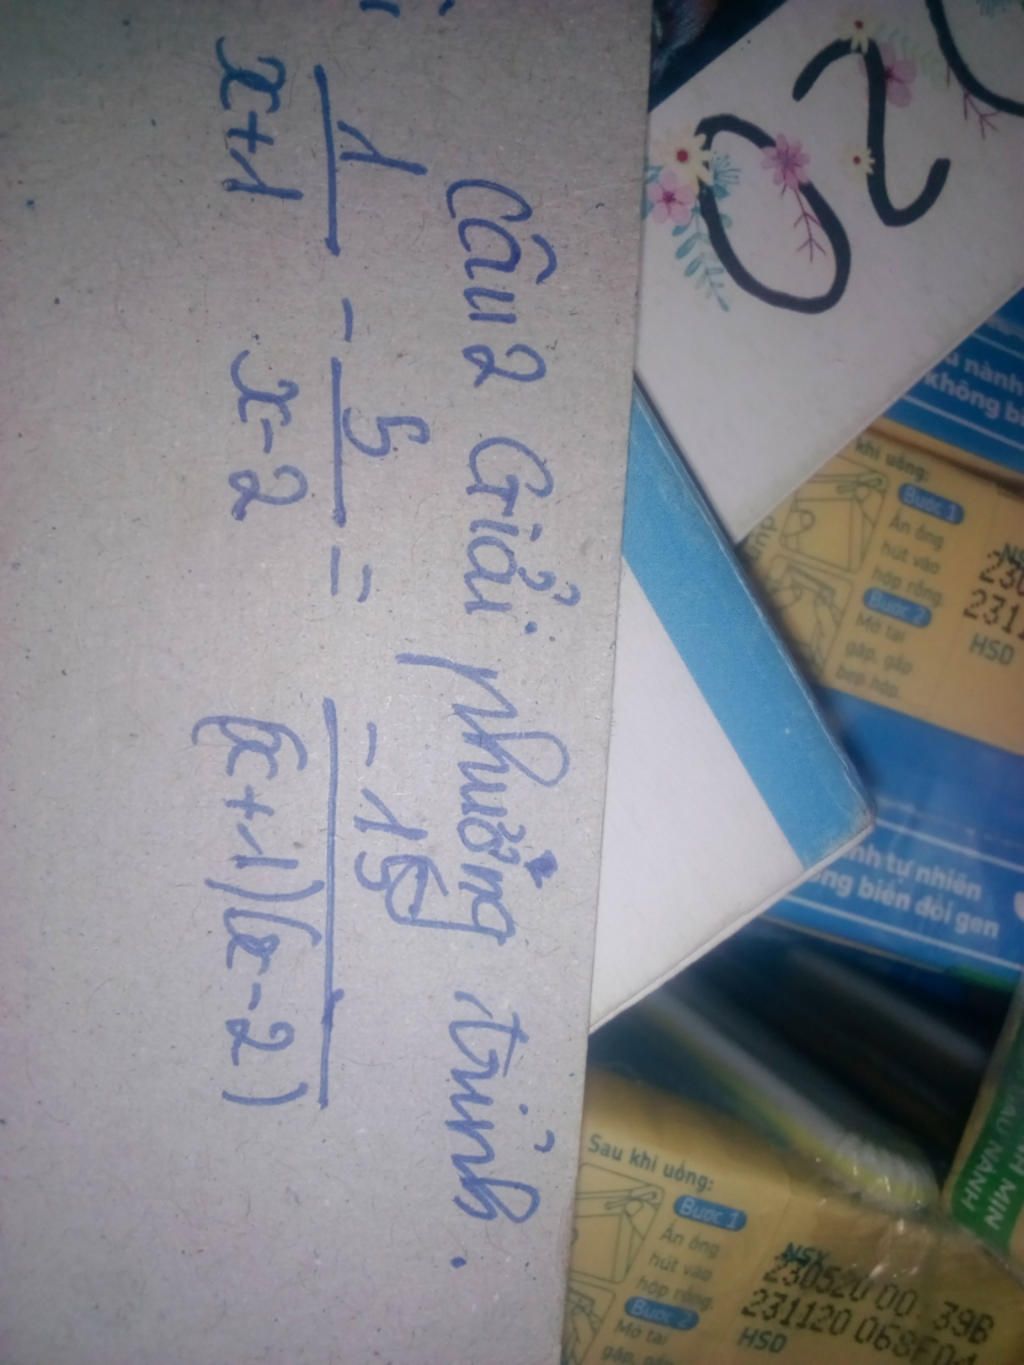 Câu 2 Giải phương trình.
1/(x+1) - 5/(x-2) = -15/((x+1)(x-2))
20
khi uống:
Bước 1
Ấn ống
hút vào
hộp rỗng.
Bước 2
Mở tai
gấp, gấp
bẹp hộp.
HSD
không
nh tự nhiên
ng biến đổi gen
Sau khi uống:
Bước 1
Ấn ống
hút vào
hộp rỗng.
Bước 2
Mở tai
NSX
230520 00 39B
231120
HSD
MIN
ĐẬU NÀNH